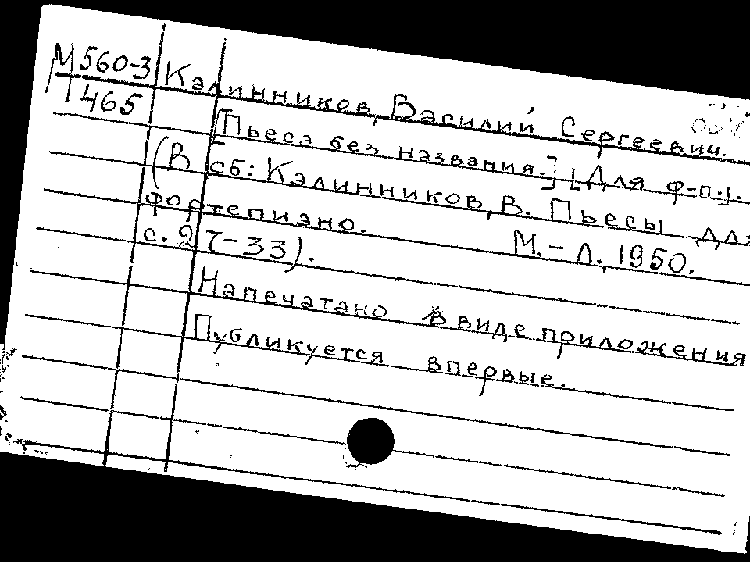 М 560-3
465
Калинников, Василий Сергеевич.
[Пьеса без названия.] [Для ф-п.].
(В сб: Калинников, В. Пьесы для
фортепиано. М.-Л., 1950.
с. 27-33).
Напечатано в виде приложения
Публикуется впервые.